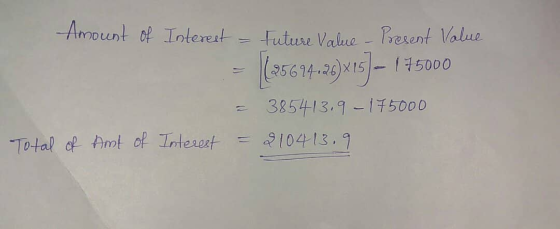 Amount of Interest = Future Value - Present Value
= [(25694.26)×15] - 175000
= 385413.9 - 175000
Total of Amt of Interest = 210413.9